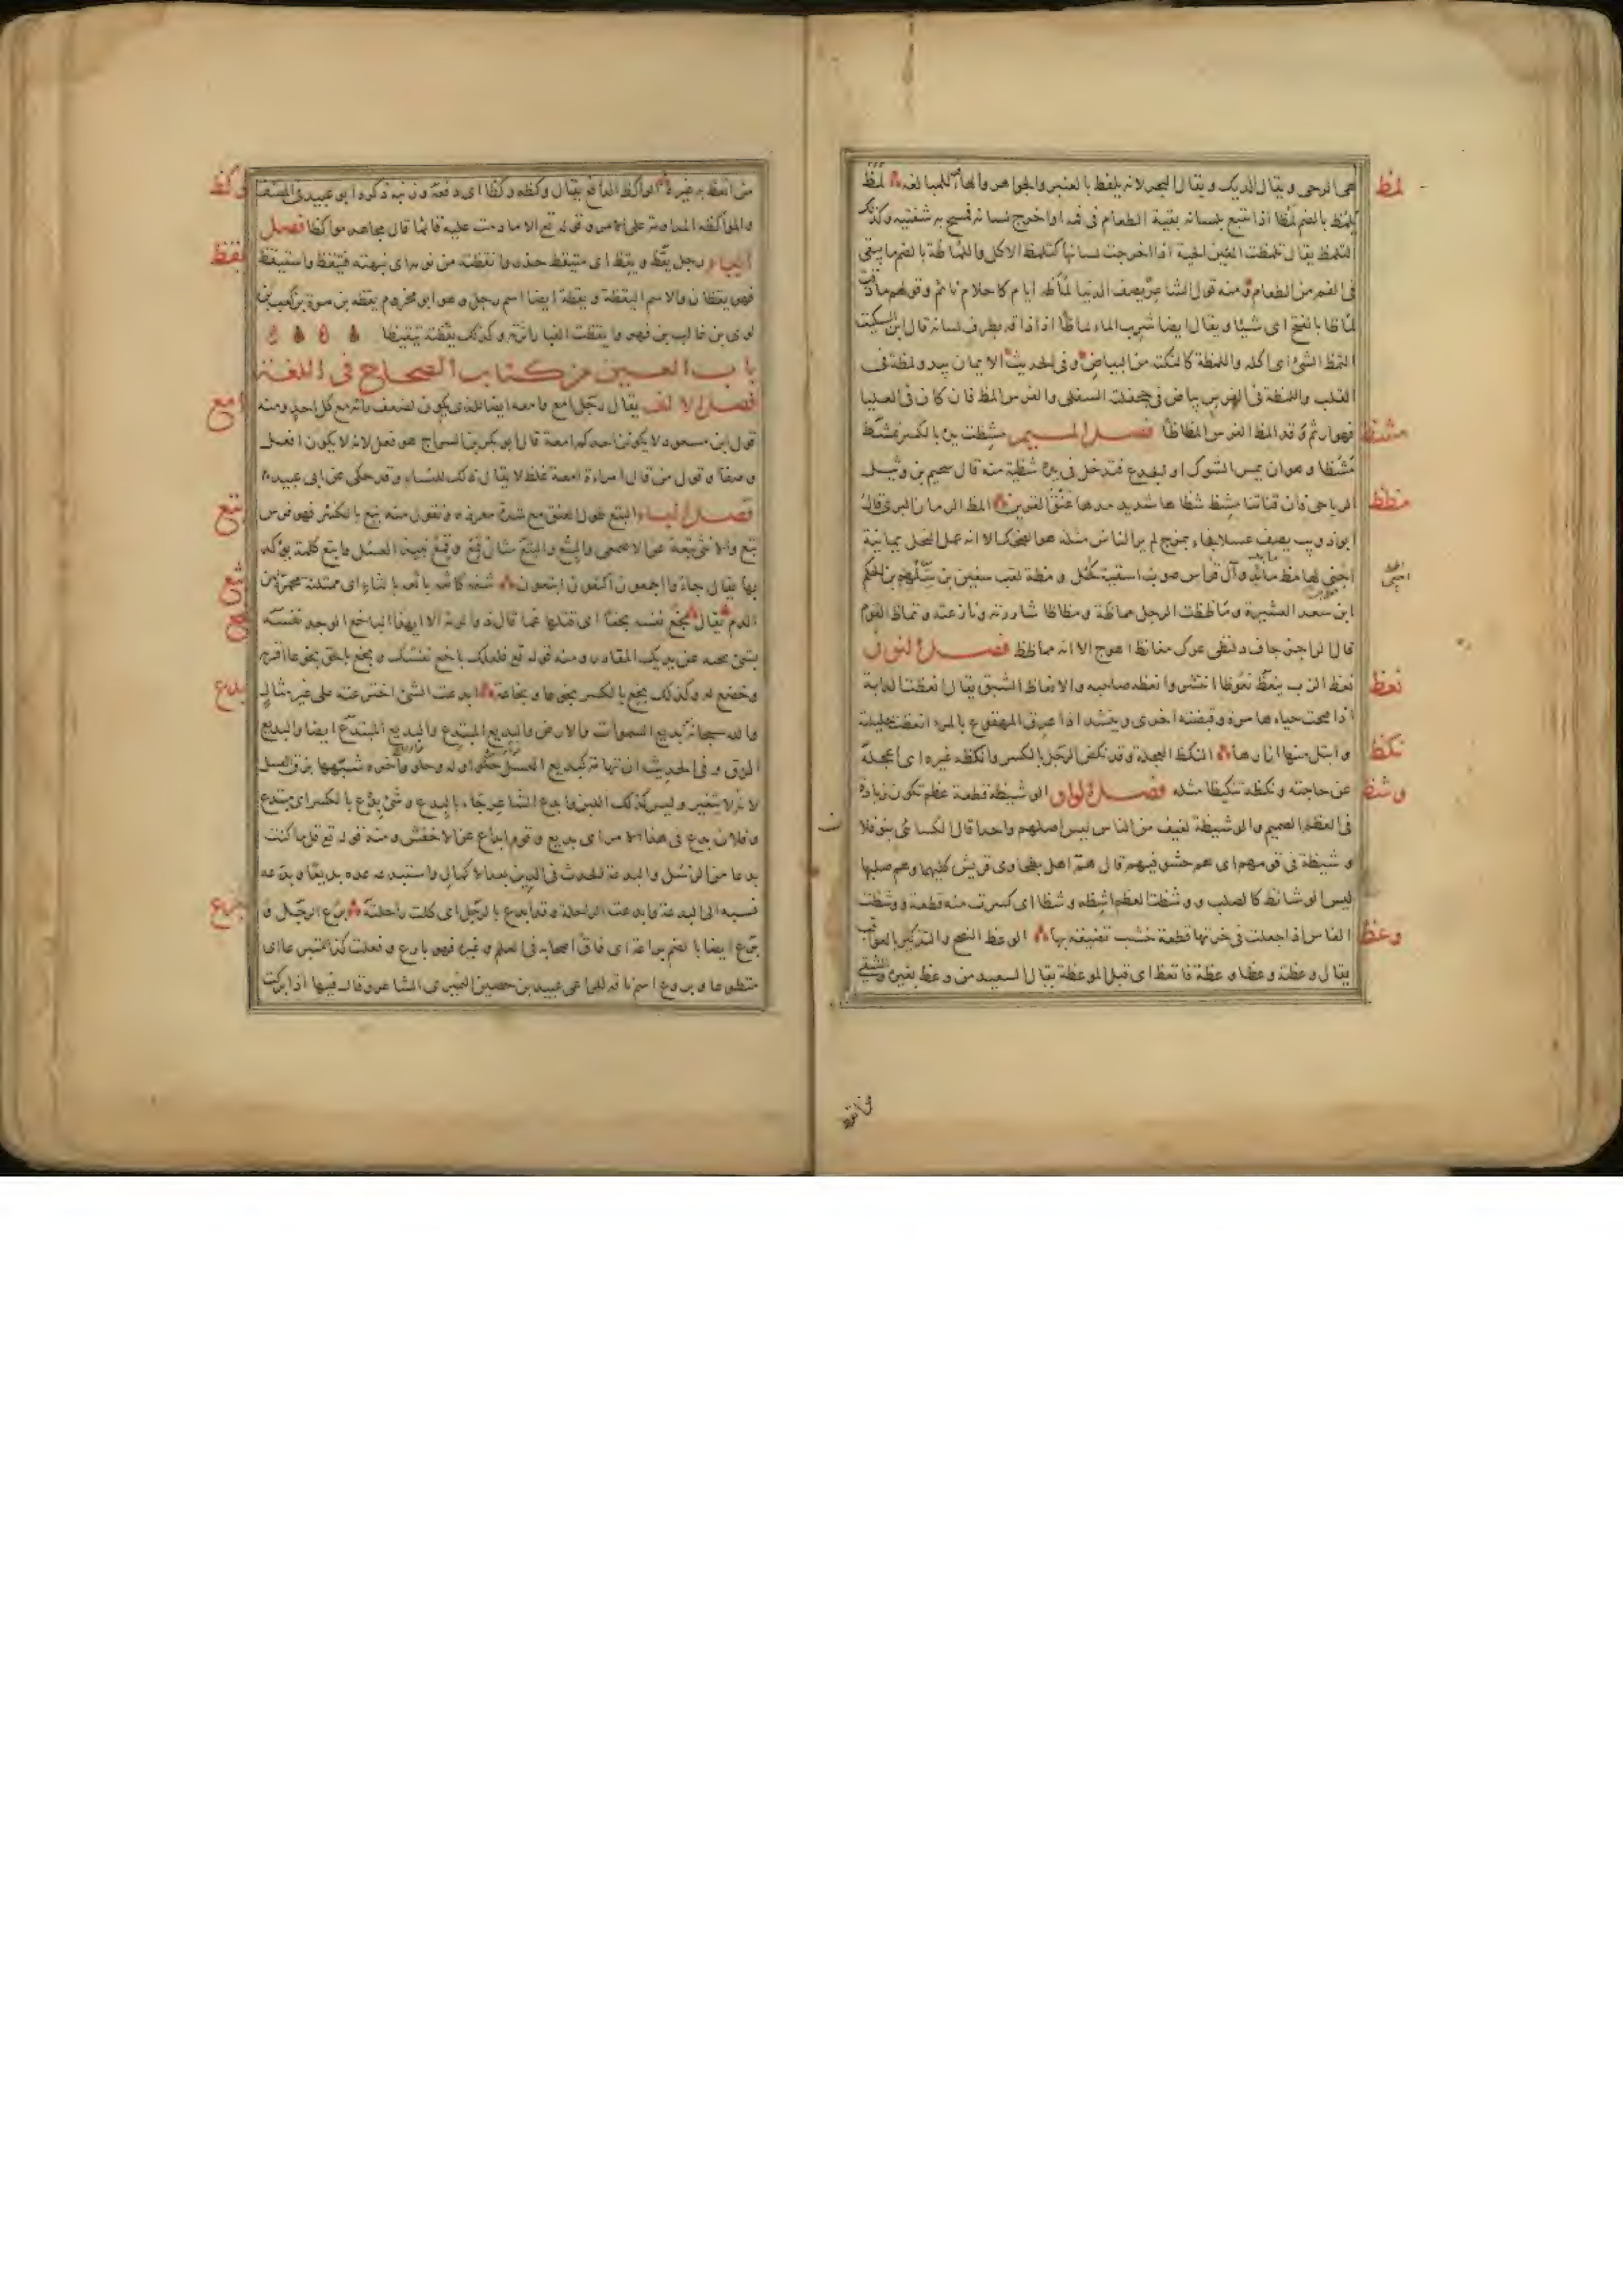 هى الرحى ويقال الديك ويقال البحر لانه يلفظ بالعنبر والجواهر والهاء للمبالغه لمظ
لمظ
يلمظ بالضم لمظا اذا تتبع بلسانه بقية الطعام فى فمه او اخرج لسانه فمسح به شفتيه وكذلك
التلمظ يقال تلمظت الحية اذا اخرجت لسانها كتلمظ الاكل واللماظة بالضم ما يبقى
فى الفم من الطعام ومنه قول الشاعر يصف الدنيا لماظة ايام كاحلام نائم وقولهم ما ذقت
لماظا بالفتح اى شيئا ويقال ايضا شرب الماء لماظا اذا ذاقه بطرف لسانه قال ابن السكيت
التمظ الشئ اى اكله واللمظة كالنكتة من البياض وفى الحديث الايمان يبدو لمظة فى
القلب واللمظة فى الفرس بياض فى جحفلته السفلى والفرس المظ فان كان فى العليا
فهو ارثم وقد المظ الفرس المظاظا فصل الميم مشظت يده بالكسر تمشظ
مشظ
مشظا وهو ان يمس الشوك او الجذع فتدخل فى يده شظية منه قال سحيم بن وثيل
الرياحى فان قناتنا مشظ شظاها شديد مدها عنق القرين المظ الرمان البرى قال
مظظ
ابو ذويب يصف عسلا فجاء بمزج لم ير الناس مثله هو الضحك الا انه عمل النحل يمانية
اجنى لها مظ مائد وآل قراس صوب اسقية كحل ومظة لقب سفين بن سلهم بن الحكم
ابن سعد العشيرة وماظظت الرجل مماظة ومظاظا شاررته ونازعته وتماظ القوم
قال الراجز جاف دلنظى عرك مغانظ اهوج الا انه مماظظ فصل النون
نعظ الزب ينعظ نعوظا انتشر وانعظه صاحبه والانعاظ الشبق يقال انعظت الدابة
نعظ
اذا فتحت حياءها مرة وقبضته اخرى وينشد اذا عرق المهقوع بالمرء انعظت حليلته
وابتل منها ازارها النكظ العجلة وقد نكظ الرجل بالكسر وانكظه غيره اى اعجله
نكظ
عن حاجته ونكظه تنكيظا مثله فصل الواو الوشيظة قطعة عظم تكون زيادة
وشظ
فى العظم الصميم والوشيظة لفيف من الناس ليس اصلهم واحدا قال الكسائى بنو فلان
وشيظة فى قومهم اى هم حشو فيهم قال هم اهل بطحاوى قريش كليهما وهم صلبها
ليس الوشائظ كالصلب ووشظت العظم اشظه وشظا اى كسرت منه قطعة ووشظت
الفاس اذا جعلت فى خرتها قطعة خشب تضيقه بها الوعظ النصح والتذكير بالعواقب
وعظ
يقال وعظته وعظا وعظة فاتعظ اى قبل الموعظة يقال السعيد من وعظ بغيره والشقى
من اتعظ به غيره المواكظ الدافع يقال وكظه وكظا اى دفعه وزبنه ذكره ابو عبيد فى المصنف
وكظ
والمواكظة المداومة على الامر وقوله تع الا ما دمت عليه قائما قال مجاهد مواكظا فصل
الياء رجل يقظ ويقظ اى متيقظ حذر وايقظته من نومه اى نبهته فتيقظ واستيقظ
يقظ
فهو يقظان والاسم اليقظة ويقظة ايضا اسم رجل وهو ابو مخزوم يقظة بن مرة بن كعب بن
لوى بن غالب بن فهر وايقظت الغبار اثرته وكذلك يقظته تيقيظا
باب العين من كتاب الصحاح فى اللغة
فصل الالف يقال رجل امع وامعة ايضا للذى يكون لضعف رايه مع كل احد ومنه
امع
قول ابن مسعود لا يكونن احدكم امعة قال ابو بكر بن السراج هو فعل لانه لا يكون افعل
وصفا وقول من قال امراة امعة غلط لا يقال ذلك للنساء وقد حكى عن ابى عبيد
فصل الباء البتع طول العنق مع شدة مغرزه وتقول منه بتع بالكسر فهو فرس
بتع
بتع والانثى بتعة عن الاصمعى والبتع والبتع مثال قمع وقمع نبيذ العسل وابتع كلمة يؤكد
بها يقال جاؤا اجمعون اكتعون ابتعون شفة كاثعة باثعة بالثاء اى ممتلئة محمرة من
بثع
الدم يقال بخع نفسه بخعا اى قتلها غما قال ذو الرمة الا ايهذا الباخع الوجد نفسه
بخع
بشئ نحته عن يديك المقادر ومنه قوله تع فلعلك باخع نفسك وبخع بالحق بخوعا اقر به
وخضع له وكذلك بخع بالكسر بخوعا وبخاعة ابدعت الشئ اخترعته على غير مثال
بدع
والله سبحانه بديع السموات والارض والبديع المبتدع والبديع المبتدع ايضا والبديع
الزق وفى الحديث ان تهامة كبديع العسل حلو اوله وحلو وآخره شبهها بزق العسل
لانه لا يتغير وليس كذلك اللبن وابدع الشاعر جاء بالبديع وشئ بدع بالكسر اى مبتدع
وفلان بدع فى هذا الامر اى بديع وقوم ابداع عن الاخفش ومنه قوله تع قل ما كنت
بدعا من الرسل والبدعة الحدث فى الدين بعد الاكمال واستبدعه عده بديعا وبدعه
نسبه الى البدعة وابدعت الراحلة وقد ابدع بالرجل اى كلت راحلته برع الرجل و
برع
برع ايضا بالضم براعة اى فاق اصحابه فى العلم وغيره فهو بارع وفعلت كذا متبرعا اى
متطوعا وبروع اسم ناقة للراعى عبيد بن حصين النميرى الشاعر وقال فيها اذا بركت